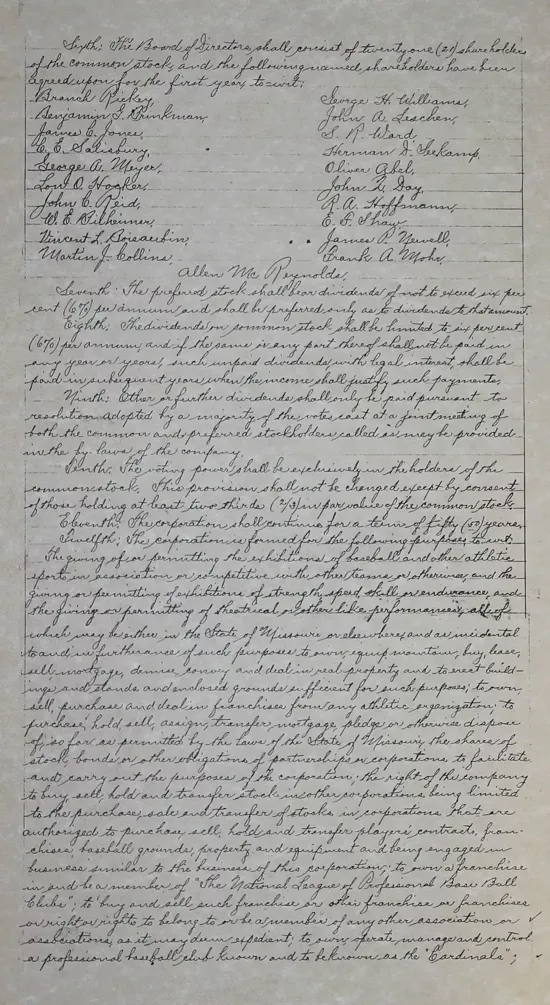 Sixth; The Board of Directors shall consist of twenty one (21) shareholders
of the common stock, and the following named shareholders have been
agreed upon for the first year, to wit:
Branch Rickey, George H. Williams,
Benjamin G. Brinkman, John A. Leschen,
James C. Jones, S. R. Ward
E. E. Salisbury, Herman D. Seekamp.
George A. Meyer, Oliver Abel,
Lon O. Hocker, John L. Day,
John C. Reid, R. A. Hoffmann,
W. E. Bilheimer, E. F. Shaw,
Vincent L. Boisaubin, James P. Newell,
Martin J. Collins Frank A. Mohr,
Allen McReynolds.
Seventh: The preferred stock shall bear dividends of not to exceed six per
cent (6%) per annum and shall be preferred only as to dividends to that amount.
Eighth; The dividends on common stock shall be limited to six per cent
(6%) per annum, and if the same or any part thereof shall not be paid in
any year or years, such unpaid dividends with legal interest, shall be
paid in subsequent years when the income shall justify such payments.
Ninth; Other or further dividends shall only be paid pursuant to
resolution adopted by a majority of the votes cast at a joint meeting of
both the common and preferred stockholders called as may be provided
in the by-laws of the company.
Tenth; The voting power shall be exclusively in the holders of the
common stock. This provision shall not be changed except by consent
of those holding at least two thirds (2/3) in par value of the common stock.
Eleventh; The corporation shall continue for a term of fifty (50) years.
Twelfth; The corporation is formed for the following purposes to wit:
The giving of or permitting the exhibitions of baseball and other athletic
sports in association or competitive with other teams or otherwise, and the
giving or permitting of exhibitions of strength, speed skill or endurance, and
the giving or permitting of theatrical or other like performances, all of
which may be either in the State of Missouri or elsewhere; and as incidental
to and in furtherance of such purposes to own, equip maintain, buy, lease,
sell, mortgage, demise, convey and deal in real property and to erect build-
ings and stands and enclosed grounds sufficient for such purposes; to own,
sell, purchase and deal in franchises from any athletic organization; to
purchase, hold, sell, assign, transfer, mortgage, pledge or otherwise dispose
of, so far as permitted by the laws of the State of Missouri, the shares of
stock, bonds or other obligations of partnerships or corporations to facilitate
and carry out the purposes of the corporation; the right of the company
to buy, sell, hold and transfer stock in other corporations being limited
to the purchase, sale and transfer of stocks in corporations that are
authorized to purchase, sell, hold and transfer players' contracts, fran-
chises, baseball grounds, property and equipment and being engaged in
business similar to the business of this corporation; to own a franchise
in and be a member of "The National League of Professional Base Ball
Clubs"; to buy and sell such franchise or other franchise or franchises
or right or rights to belong to or be a member of any other association or
associations, as it may deem expedient; to own, operate, manage and control
a professional baseball club known and to be known as the "Cardinals";